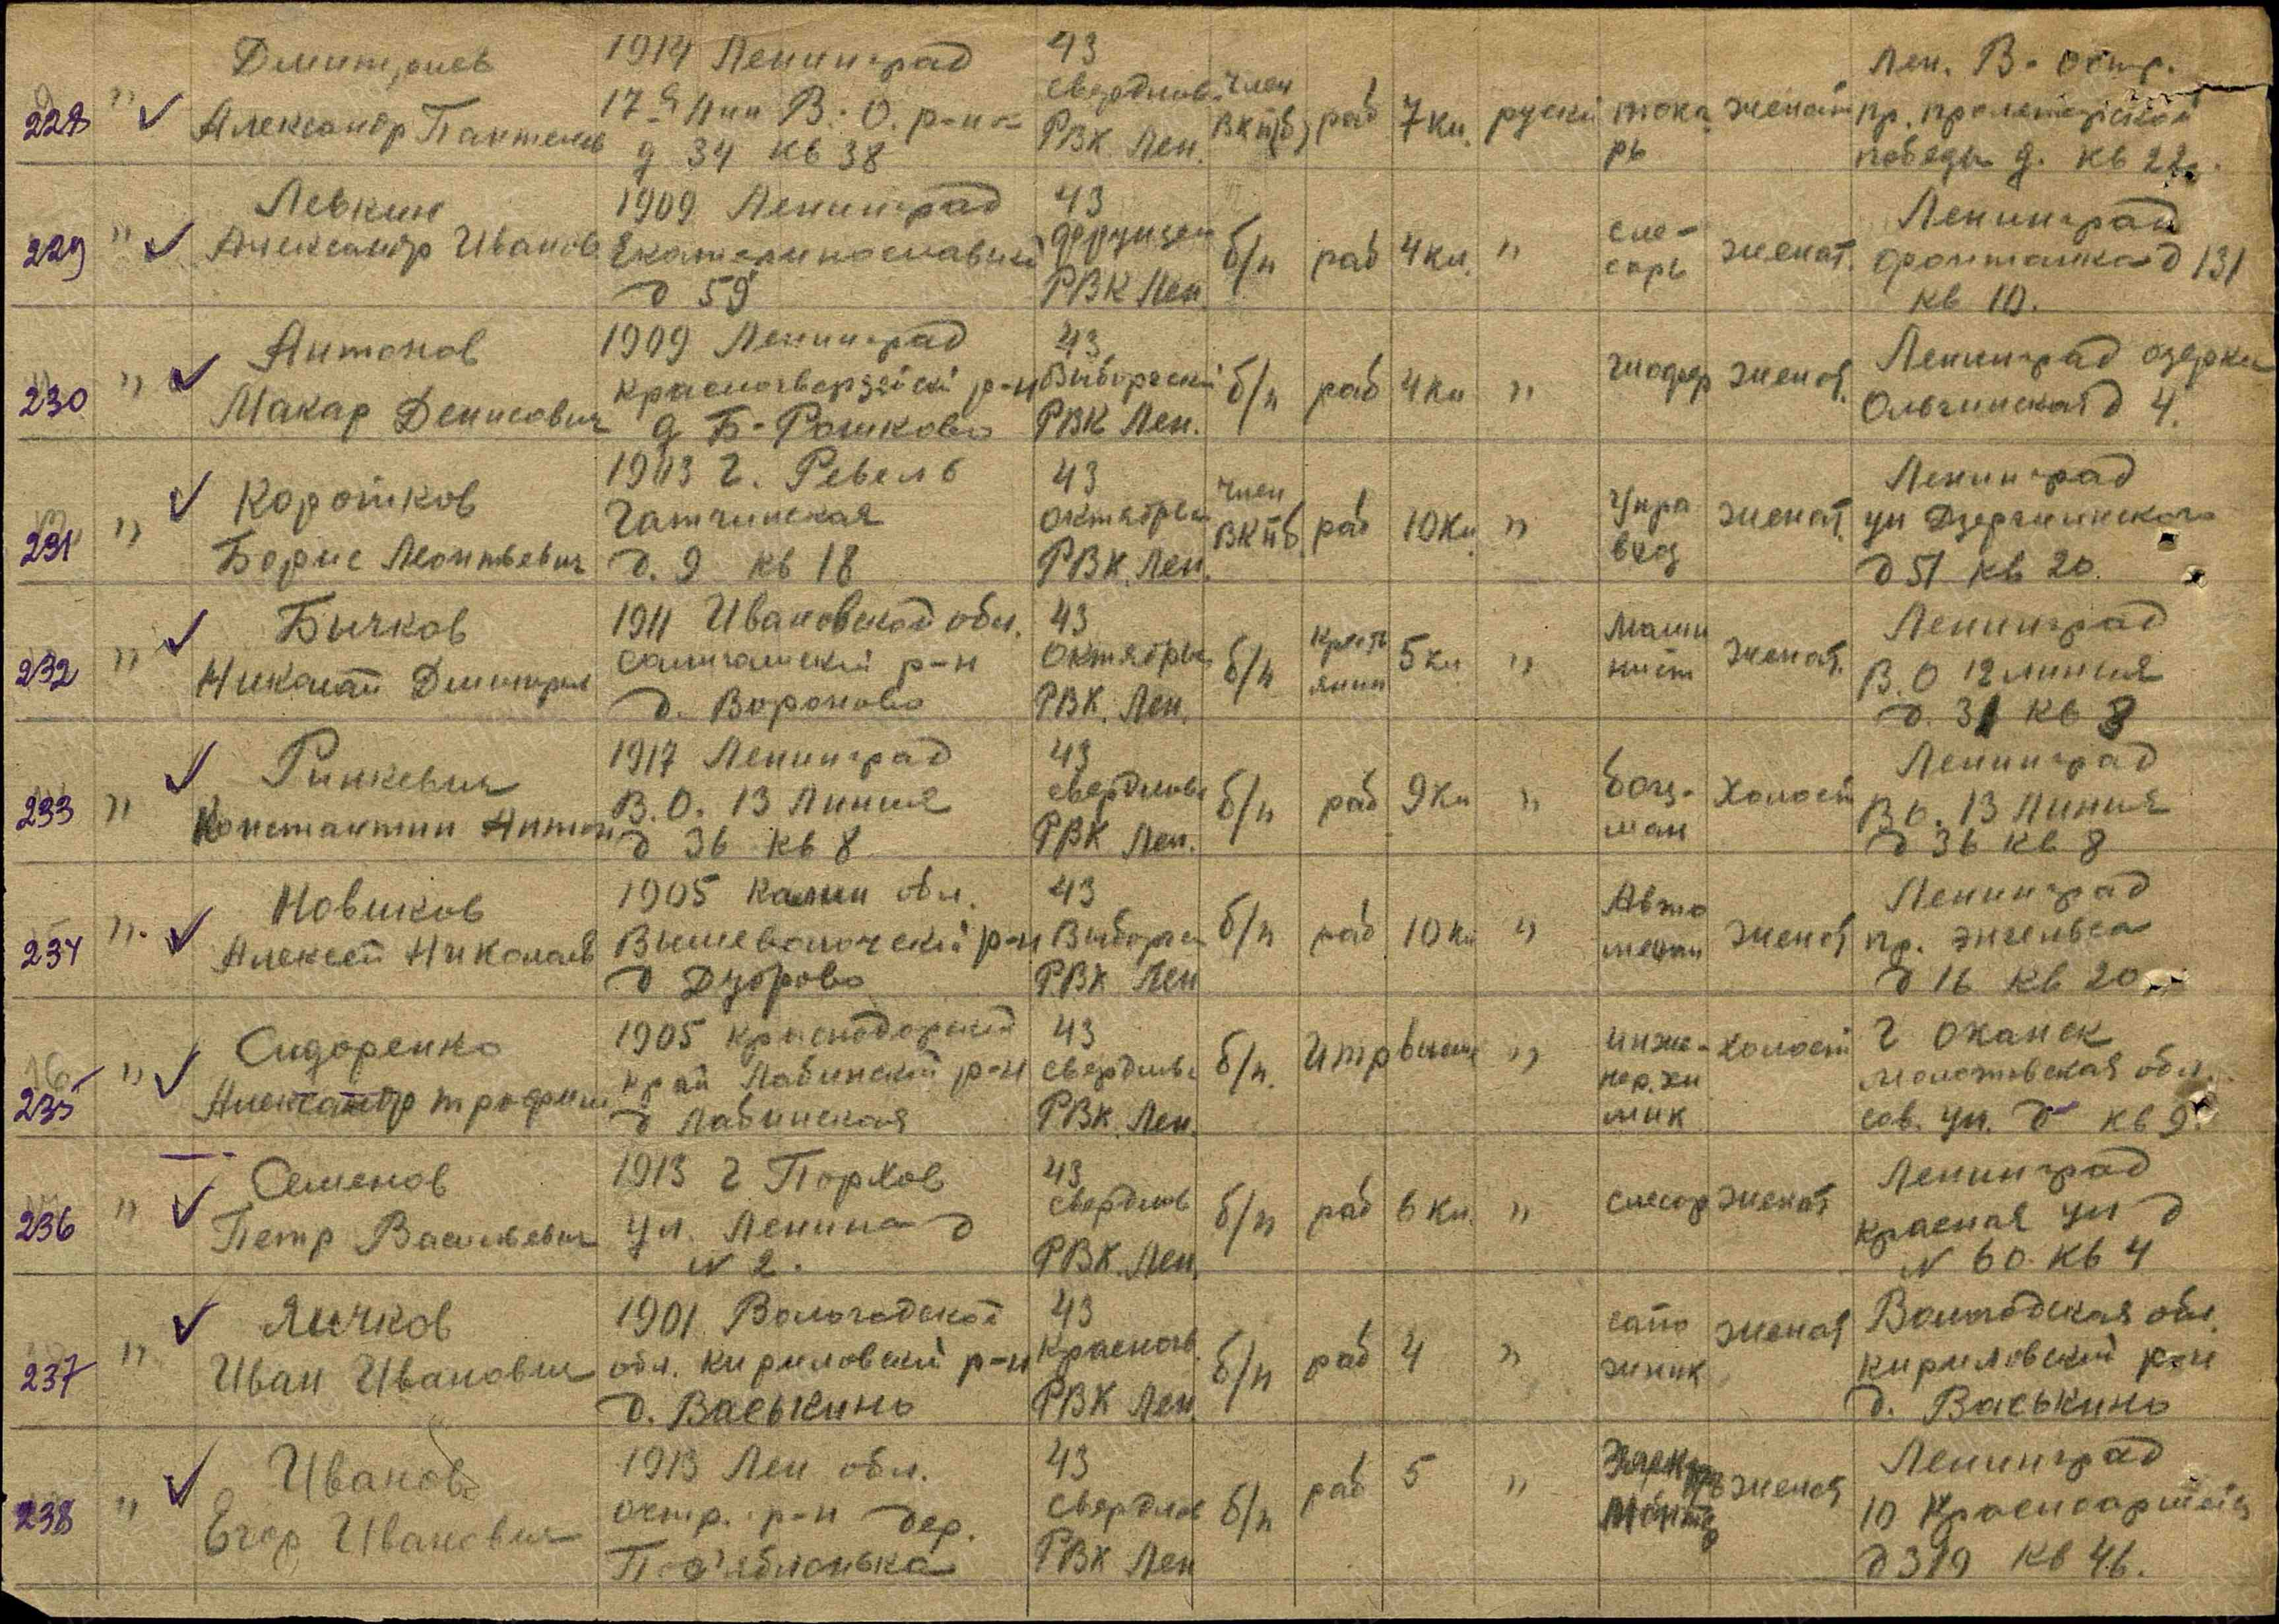 228 " ✓ Дмитриев 1914 Ленинград 43 Лен. В. остр.
Александр Пантелев 17-я Лин В.О. р-н свердлов. член раб 7 кл. руски тока женат пр. пролетарской
д 34 кв 38 РВК Лен. ВКП(б) рь победы д. кв 22.
229 " ✓ Левкин 1909 Ленинград 43 Ленинград
Александр Иванов Екатеринославский фрунзен б/п раб 4 кл. " сле- женат. фонтанка д 131
д 59 РВК Лен. сарь кв 10.
230 " ✓ Антонов 1909 Ленинград 43 Ленинград озерки
Макар Денисович красногвардейски р-н Выборгский б/п раб 4 кл " шофер женат. Ольгинская д 4.
д Б-Рошково РВК Лен.
231 " ✓ Коротков 1913 г. Ревель 43 член Ленинград
Борис Леонтьевич Гатчинская октябрьс ВКПб раб 10 кл. " упра женат. ул Дзержинского
д. 9 кв 18 РВК Лен. вхоз д 51 кв 20.
232 " ✓ Бычков 1911 Ивановской обл. 43 Ленинград
Николай Дмитрив солигалиский р-н октябрьс б/п кресть 5 кл " маши женат. В.О 12 линия
д. Вороново РВК. Лен. янин нист д. 31 кв 8
233 " ✓ Ринкевич 1917 Ленинград 43 Ленинград
Константин Антон В.О. 13 Линия свердловс б/п раб 9 кл " боц- холост В о. 13 Линия
д 36 кв 8 РВК Лен. ман д 36 кв 8
234 ". ✓ Новиков 1905 Калин обл. 43 Авто Ленинград
Алексей Николаев Вышеволочский р-н Выборгс б/п раб 10 кл " механ женат пр. энгельса
д Дуброво РВК Лен д 16 кв 20
235 " ✓ Сидоренко 1905 краснодарский 43 инже- холост г Оханск
Александр трофим край Лабинский р-н свердловс б/п. Итр высше " нер. хи молотовская обл.
д Лабинская РВК. Лен. мик сов. ул. д кв 9.
236 " ✓ Семенов 1913 г Порхов 43 Ленинград
Петр Васильевич ул. Ленина д свердлов б/п раб 6 кл. " слесар женат красная ул д
N 2. РВК. Лен. N 60. кв 4
237 " ✓ Янчков 1901 Вологодской 43 сапо женат Вологодская обл.
Иван Иванович обл. кириловский р-н красногв. б/п раб 4 " жник кириловский р-н
д. Васькино РВК Лен д. Васькино
238 " ✓ Иванов 1913 Лен обл. 43 Ленинград
Егор Иванович остр. р-н дер. свердлов б/п раб 5 " женат 10 Красноармейск
Под'яблонька РВК Лен д 3/9 кв 46.